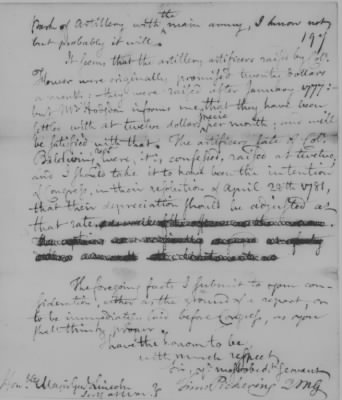 Park of Artillery with the main army, I know not
but probably it will.
197
It seems, that the artillery artificers raised by Colo.
Flower were originally promised twenty dollars
a month; they were raised after January 1777:
but Mr Hodgdon informs me, that they have been
settled with at twelve dollars specie per month; and will
be satisfied with that. The artificers late of Col.
Baldwin's regt were, it is confessed, raised at twelve,
and I should take it to have been the intention
of Congress, in their resolution of April 28th 1781,
that their depreciation should be adjusted at
that rate
The foregoing facts I submit to your con-
sideration, either as the ground of a report, or
to be immediately laid before Congress, as you
shall think proper.
I have the honor to be
with much respect
Sir, yr. most obedt. servant
Honble. Major Genl. Lincoln
Timo. Pickering QMG
Secy at War